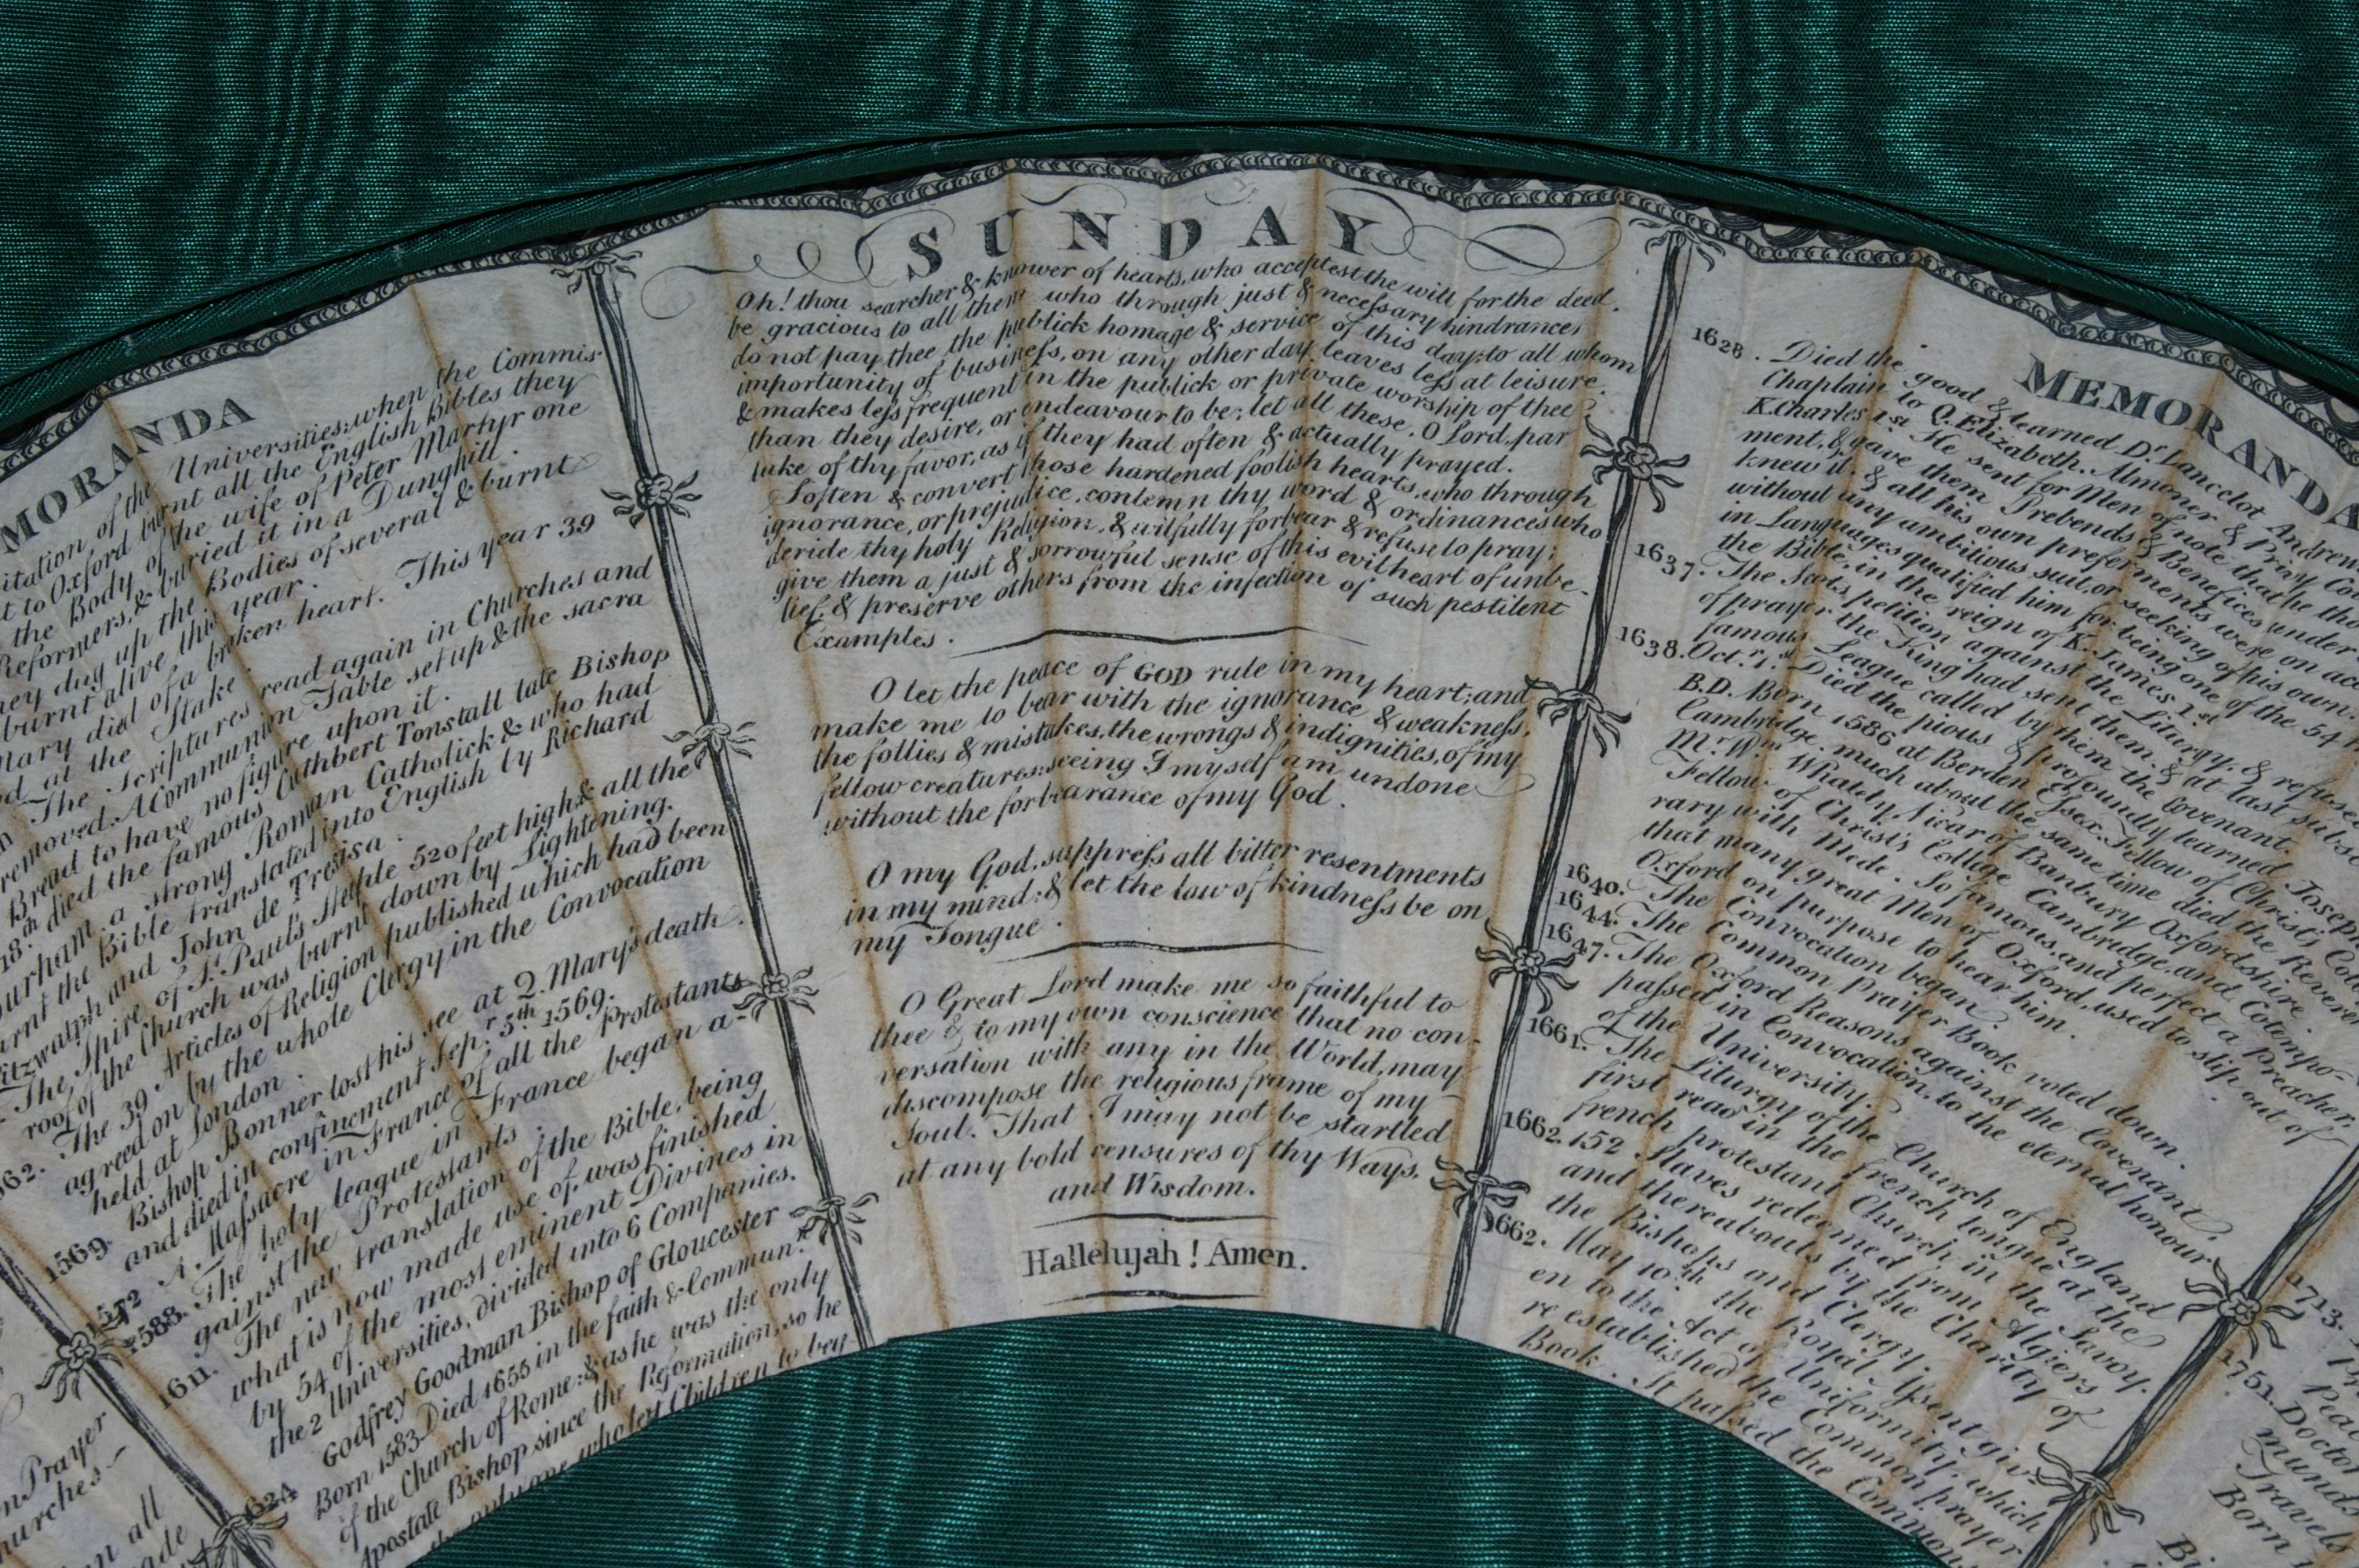 MORANDA
itation of the Universities: when the Commis-
t to Oxford burnt all the English Bibles they
the Body of the wife of Peter Martyr one
Reformers, & buried it in a Dunghill.
hey dug up the Bodies of several & burnt
burnt alive this year.
Mary died of a broken heart. This year 39
at the Stake.
The Scriptures read again in Churches and
removed. A Communion Table set up & the sacra
Bread to have no figure upon it.
18th died the famous Cuthbert Tonstall late Bishop
Durham, a strong Roman Catholick & who had
burnt the Bible translated into English by Richard
Fitzwalph and John de Trevisa.
The Spire of St. Paul's Steeple 520 feet high & all the
roof of the Church was burnt down by Lightening.
562. The 39 Articles of Religion published which had been
agreed on by the whole Clergy in the Convocation
held at London.
1569. Bishop Bonner lost his see at Q. Mary's death
and died in confinement Sepr. 5th 1569.
1572 A Massacre in France of all the Protestants
1588. The holy league in France began a-
gainst the Protestants.
1611. The new translation of the Bible, being
what is now made use of, was finished
by 54 of the most eminent Divines in
the 2 Universities, divided into 6 Companies.
1624 Godfrey Goodman Bishop of Gloucester
Born 1583. Died 1655 in the faith & Commun.n
of the Church of Rome: & as he was the only
Apostate Bishop since the Reformation, so he
the only one who left Children to beg
n Prayer
hurches
n all
ade
SUNDAY
Oh! thou searcher & knower of hearts, who acceptest the will for the deed.
be gracious to all them who through just & necessary hindrances
do not pay thee the publick homage & service of this day; to all whom
importunity of business, on any other day leaves less at leisure
& makes less frequent in the publick or private worship of thee
than they desire, or endeavour to be; let all these, O Lord, par
take of thy favor, as if they had often & actually prayed.
Soften & convert those hardened foolish hearts, who through
ignorance, or prejudice, contemn thy word & ordinances who
deride thy holy Religion, & wilfully forbear & refuse to pray;
give them a just & sorrowful sense of this evil heart of unbe-
lief, & preserve others from the infection of such pestilent
Examples.
O let the peace of GOD rule in my heart; and
make me to bear with the ignorance & weakness,
the follies & mistakes, the wrongs & indignities, of my
fellow creatures: seeing I myself am undone
without the forbearance of my God.
O my God, suppress all bitter resentments
in my mind: & let the law of kindness be on
my Tongue.
O Great Lord make me so faithful to
thee & to my own conscience that no con-
versation with any in the World, may
discompose the religious frame of my
Soul. That I may not be startled
at any bold censures of thy Ways,
and Wisdom.
Hallelujah! Amen.
MEMORANDA
1628. Died the good & learned Dr. Lancelot Andrew
Chaplain to Q. Elizabeth. Almoner & Privy Cou
K. Charles 1st He sent for Men of note that he tho
ment, & gave them Prebends & Benefices under
knew it. & all his own preferments were on acc
without any ambitious suit, or seeking of his own.
in Languages qualified him for being one of the 54
the Bible, in the reign of K. James 1st
1637. The Scots petition against the Liturgy, & refused
of prayer the King had sent them: & at last subsc
famous League called by them the Covenant.
1638. Octr. 1st Died the pious & profoundly learned Joseph
B.D. Born 1586 at Berden Essex. Fellow of Christ's Coll
Cambridge. much about the same time died the Reveren
Mr. Wm. Whately, Vicar of Banbury Oxfordshire.
Fellow of Christ's College Cambridge, and Cotempo-
rary with Mede. So famous, and perfect a Preacher,
that many great Men of Oxford, used to slip out of
Oxford on purpose to hear him.
1640. The Convocation began.
1644. The Common Prayer Book voted down.
1647. The Oxford Reasons against the Covenant
passed in Convocation, to the eternal honour
of the University.
1661. The Liturgy of the Church of England
first read in the french tongue at the
french protestant Church in the Savoy.
1662. 152 Slaves redeemed from Algiers
and thereabouts by the Charity of
the Bishops and Clergy.
1662. May 10th the Royal Assent giv-
en to the Act of Uniformity, which
re established the Common prayer
Book. It passed the Commons
1713.
1751. Doctor
munds
Travels
Born